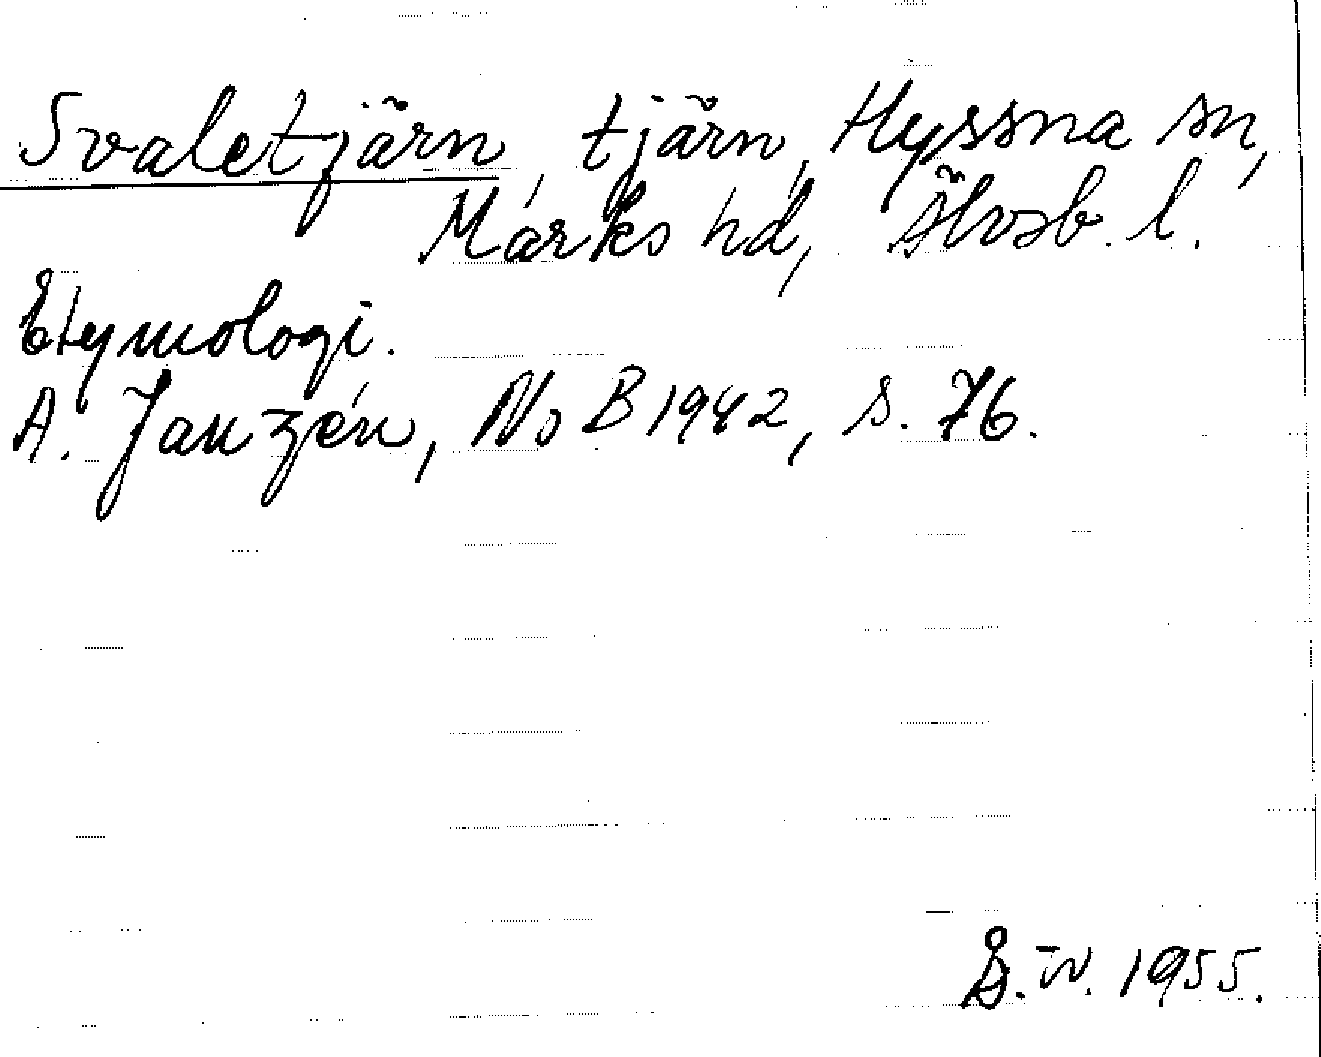 Svaletjärn, tjärn, Hyssna sn,
Marks hd, Älvsb. l.
Etymologi.
A. Janzén, NoB 1942, s. 76.
1955.